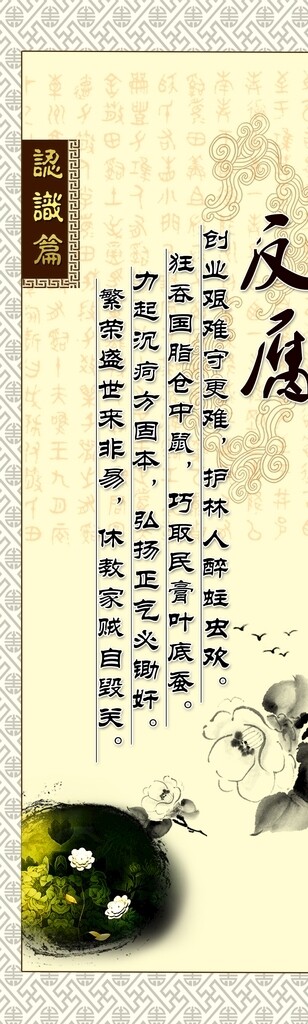 反腐
创业艰难守更难，护林人醉蛀虫欢。
狂吞国脂仓中鼠，巧取民膏叶底蚕。
力起沉疴方固本，弘扬正气必锄奸。
繁荣盛世来非易，休教家贼自毁关。
認識篇